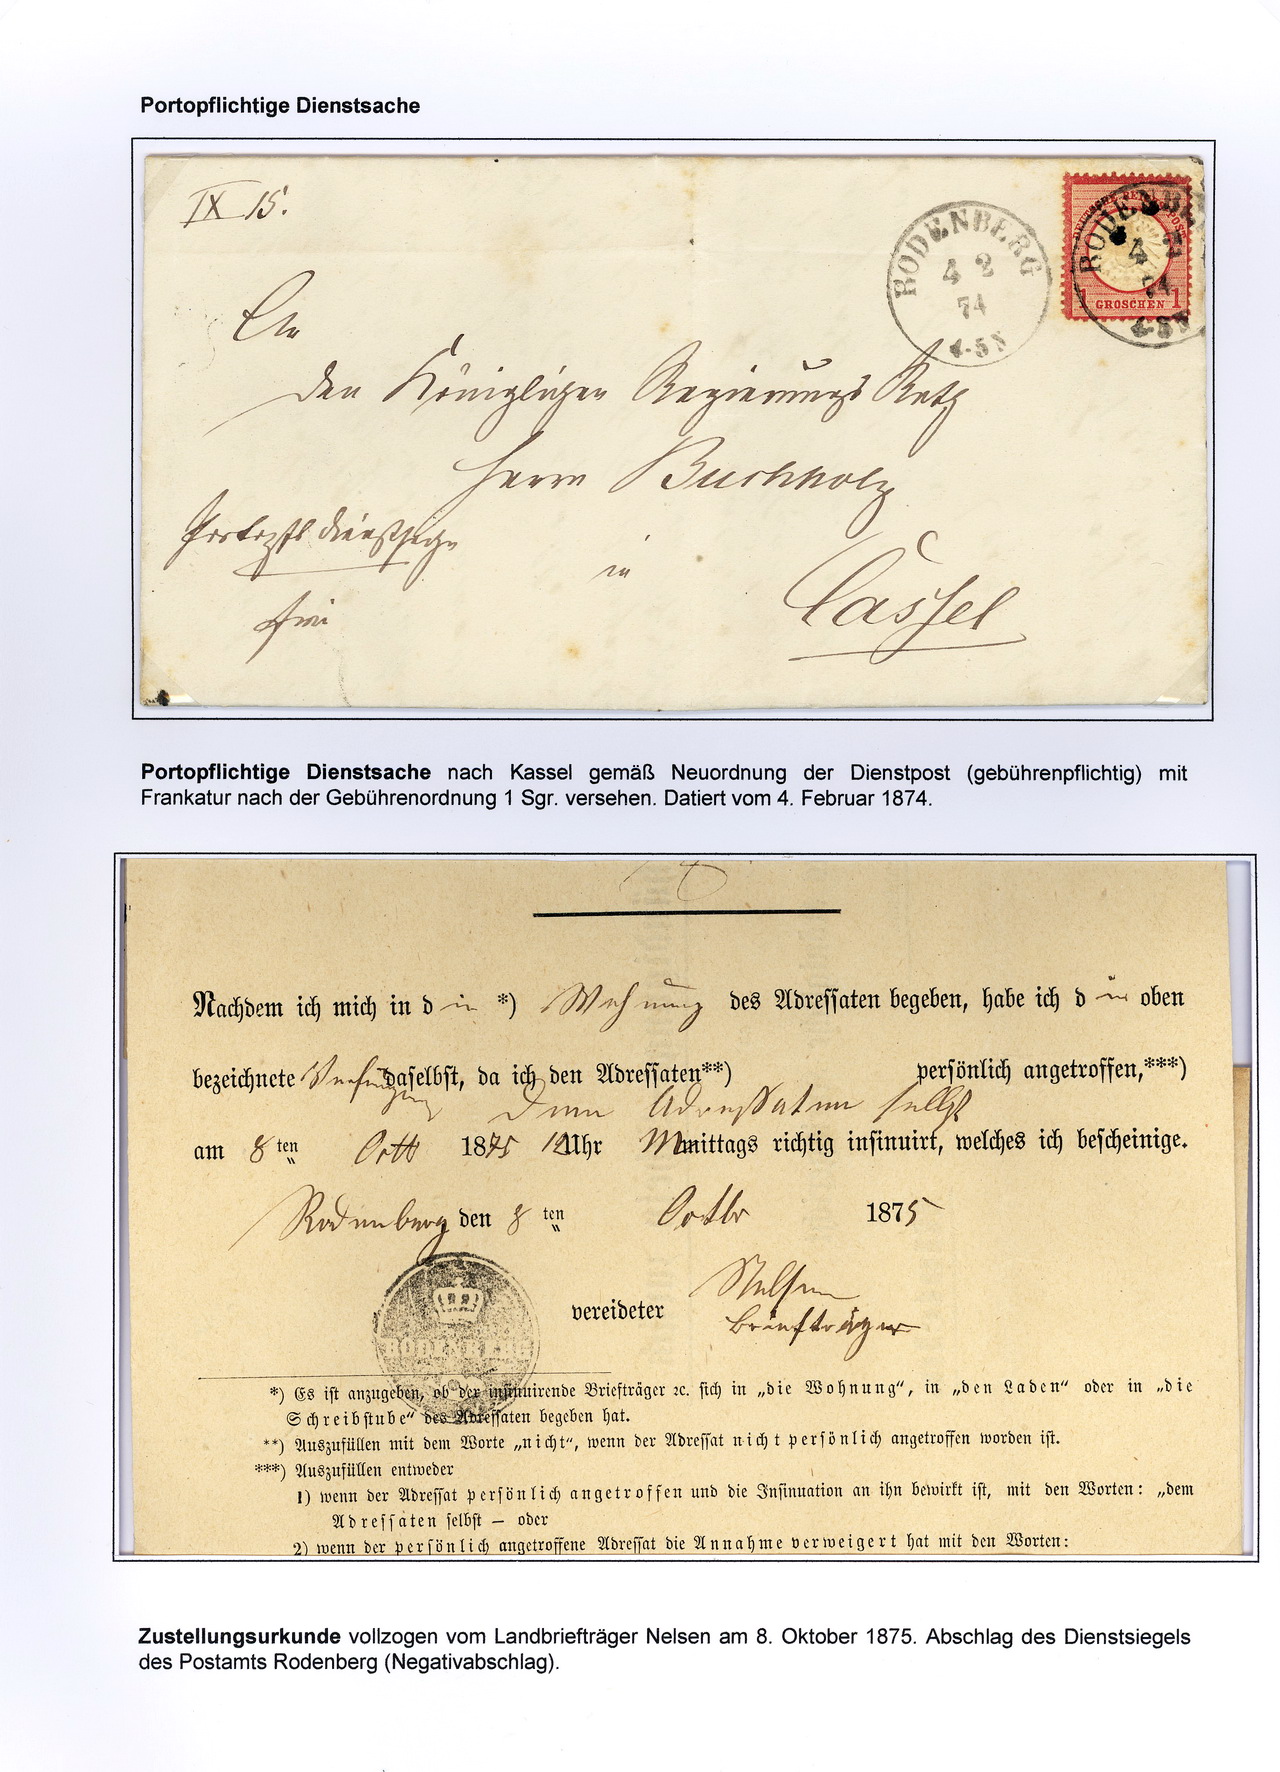 Portopflichtige Dienstsache
IX 15.
RODENBERG
4 2
74
4-5 N
DEUTSCHE REICHS-POST
1 GROSCHEN 1
RODENBERG
4 2
74
4-5 N
An
den Königlichen Regierungs Rath
Herrn Buchholz
Portopfl. Dienstsache
in
Cassel
frei
Portopflichtige Dienstsache nach Kassel gemäß Neuordnung der Dienstpost (gebührenpflichtig) mit
Frankatur nach der Gebührenordnung 1 Sgr. versehen. Datiert vom 4. Februar 1874.
Nachdem ich mich in d ie *) Wohnung des Adressaten begeben, habe ich d ie oben
bezeichnete Verfügung daselbst, da ich den Adressaten**) persönlich angetroffen,***)
dem Adressaten selbst
am 8 ten Octb 1875 12 Uhr Mmittags richtig insinuirt, welches ich bescheinige.
Rodenberg den 8 ten Octbr 1875
Nelsen
vereideter Briefträger
RODENBERG
*) Es ist anzugeben, ob der insinuirende Briefträger ꝛc. sich in „die Wohnung“, in „den Laden“ oder in „die
Schreibstube“ des Adressaten begeben hat.
**) Auszufüllen mit dem Worte „nicht“, wenn der Adressat nicht persönlich angetroffen worden ist.
***) Auszufüllen entweder
1) wenn der Adressat persönlich angetroffen und die Insinuation an ihn bewirkt ist, mit den Worten: „dem
Adressaten selbst — oder
2) wenn der persönlich angetroffene Adressat die Annahme verweigert hat mit den Worten:
Zustellungsurkunde vollzogen vom Landbriefträger Nelsen am 8. Oktober 1875. Abschlag des Dienstsiegels
des Postamts Rodenberg (Negativabschlag).